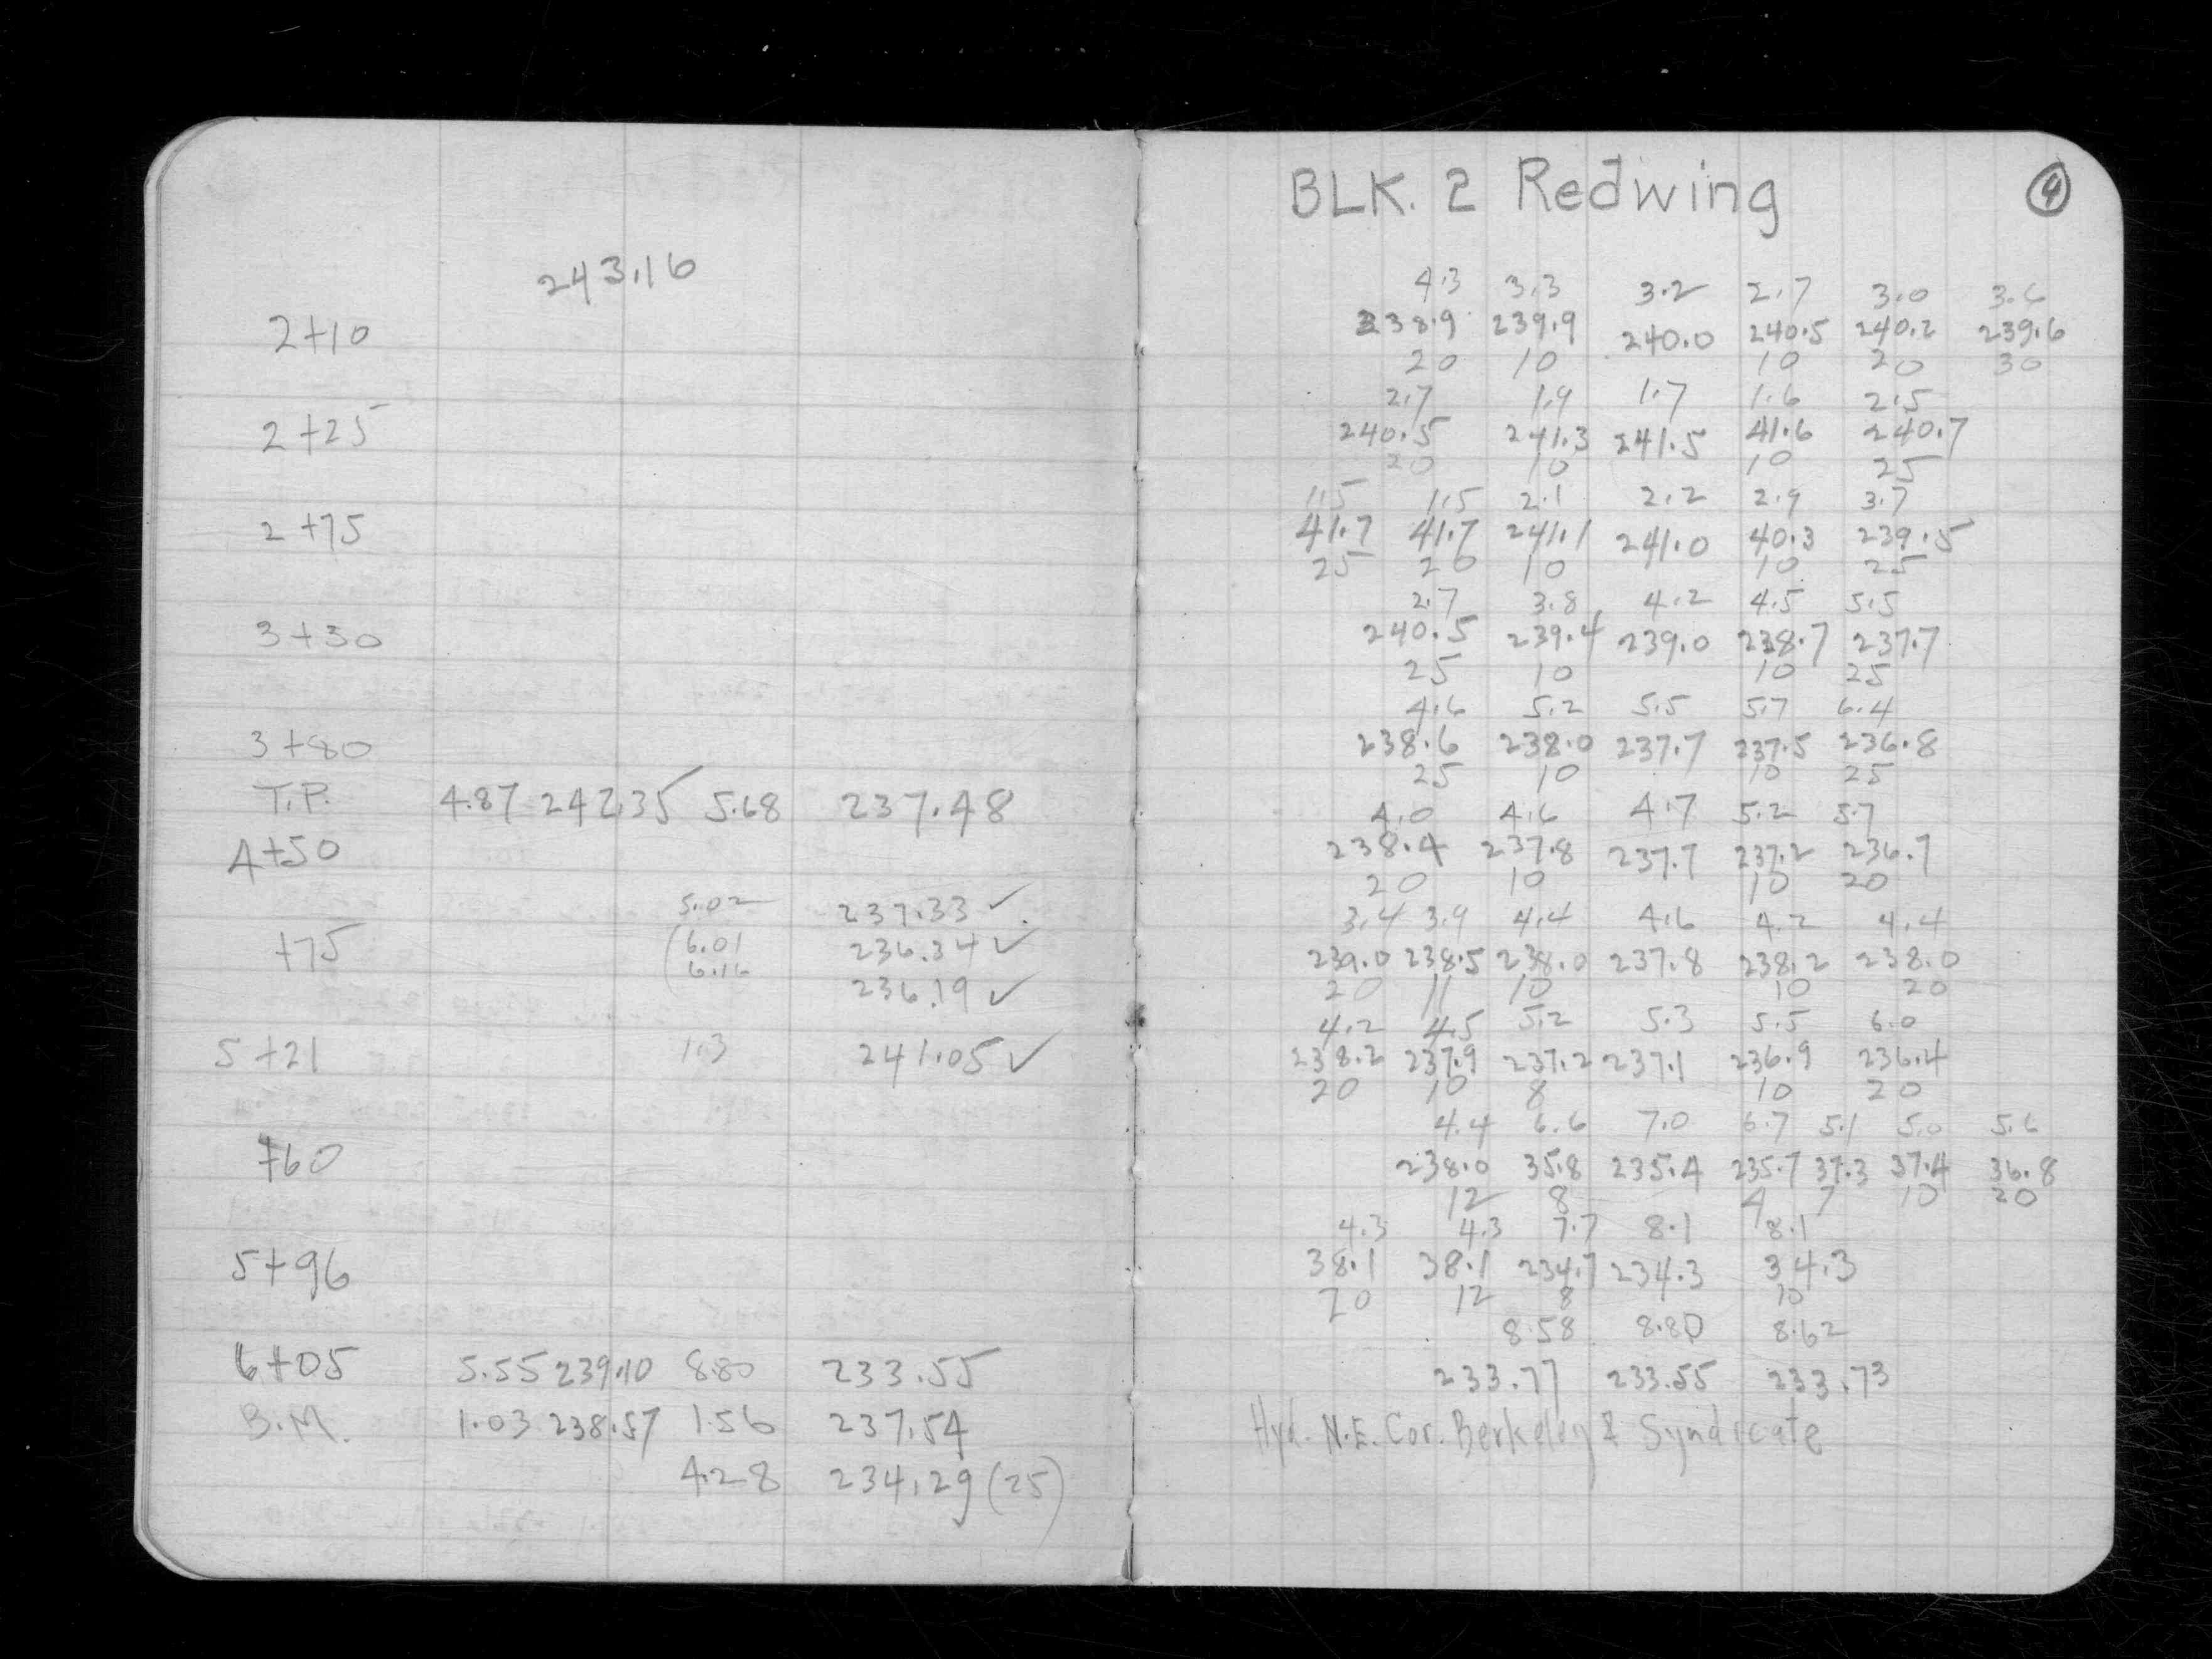 243.16
2+10
2+25
2+75
3+30
3+80
T.P. 4.87 242.35 5.68 237.48
4+50
5.02 237.33 ✓
+75 (6.01 236.34 ✓
6.16 236.19 ✓
5+21 1.3 241.05 ✓
+60
5+96
6+05 5.55 239.10 8.80 233.55
B.M. 1.03 238.57 1.56 237.54
4.28 234.29 (25)
BLK. 2 Redwing 4
4.3 3.3 3.2 2.7 3.0 3.6
238.9 239.9 240.0 240.5 240.2 239.6
20 10 10 20 30
2.7 1.9 1.7 1.6 2.5
240.5 241.3 241.5 41.6 240.7
20 10 10 25
1.5 1.5 2.1 2.2 2.9 3.7
41.7 41.7 241.1 241.0 40.3 239.5
25 20 10 10 25
2.7 3.8 4.2 4.5 5.5
240.5 239.4 239.0 238.7 237.7
25 10 10 25
4.6 5.2 5.5 5.7 6.4
238.6 238.0 237.7 237.5 236.8
25 10 10 25
4.0 4.6 4.7 5.2 5.7
238.4 237.8 237.7 237.2 236.7
20 10 10 20
3.4 3.9 4.4 4.6 4.2 4.4
239.0 238.5 238.0 237.8 238.2 238.0
20 11 10 10 20
4.2 4.5 5.2 5.3 5.5 6.0
238.2 237.9 237.2 237.1 236.9 236.4
20 10 8 10 20
4.4 6.6 7.0 6.7 5.1 5.0 5.6
238.0 35.8 235.4 235.7 37.3 37.4 36.8
12 8 4 7 10 20
4.3 4.3 7.7 8.1 8.1
38.1 38.1 234.7 234.3 34.3
20 12 8 10
8.58 8.80 8.62
233.77 233.55 233.73
Hyd. N.E. Cor. Berkeley & Syndicate